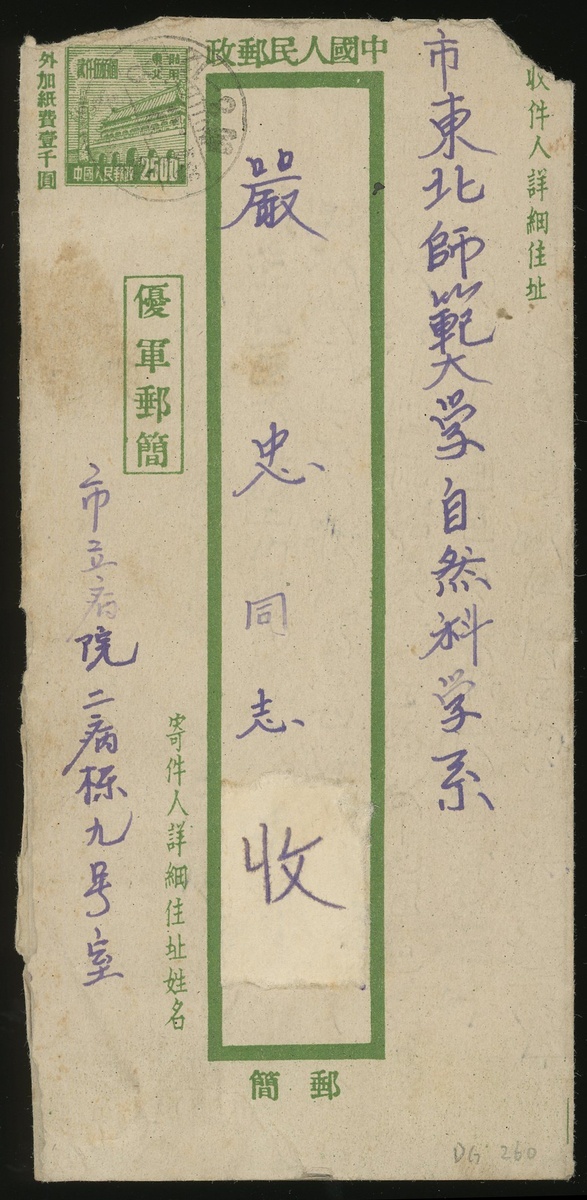 中國人民郵政
收件人詳細住址
市東北師範大学自然科学系
嚴忠同志
收
外加紙費壹千圓
東北
貼用
中國人民郵政 2500
優軍郵簡
寄件人詳細住址姓名
市立病院二病栋九号室
郵簡
DG 260